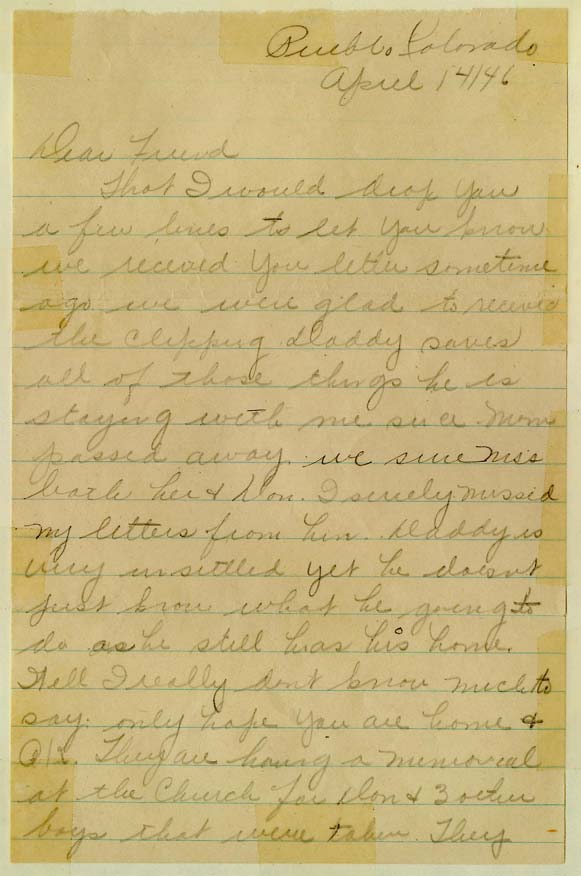 Pueblo Colorado
April 14/46
Dear Friend
That I would drop you
a few lines to let you know
we recieved you letter sometime
ago we were glad to receive
the clipping. Daddy saves
all of those things he is
staying with me since Mom
passed away. we sure miss
both her & Don. I surely missed
my letters from him. Daddy is
very unsettled yet he doesnt
just know what he going to
do as he still has his home.
Well I really dont know much to
say. only hope you are home &
O.K. They are having a memorial
at the Church for Don & 3 other
boys that were taken. They